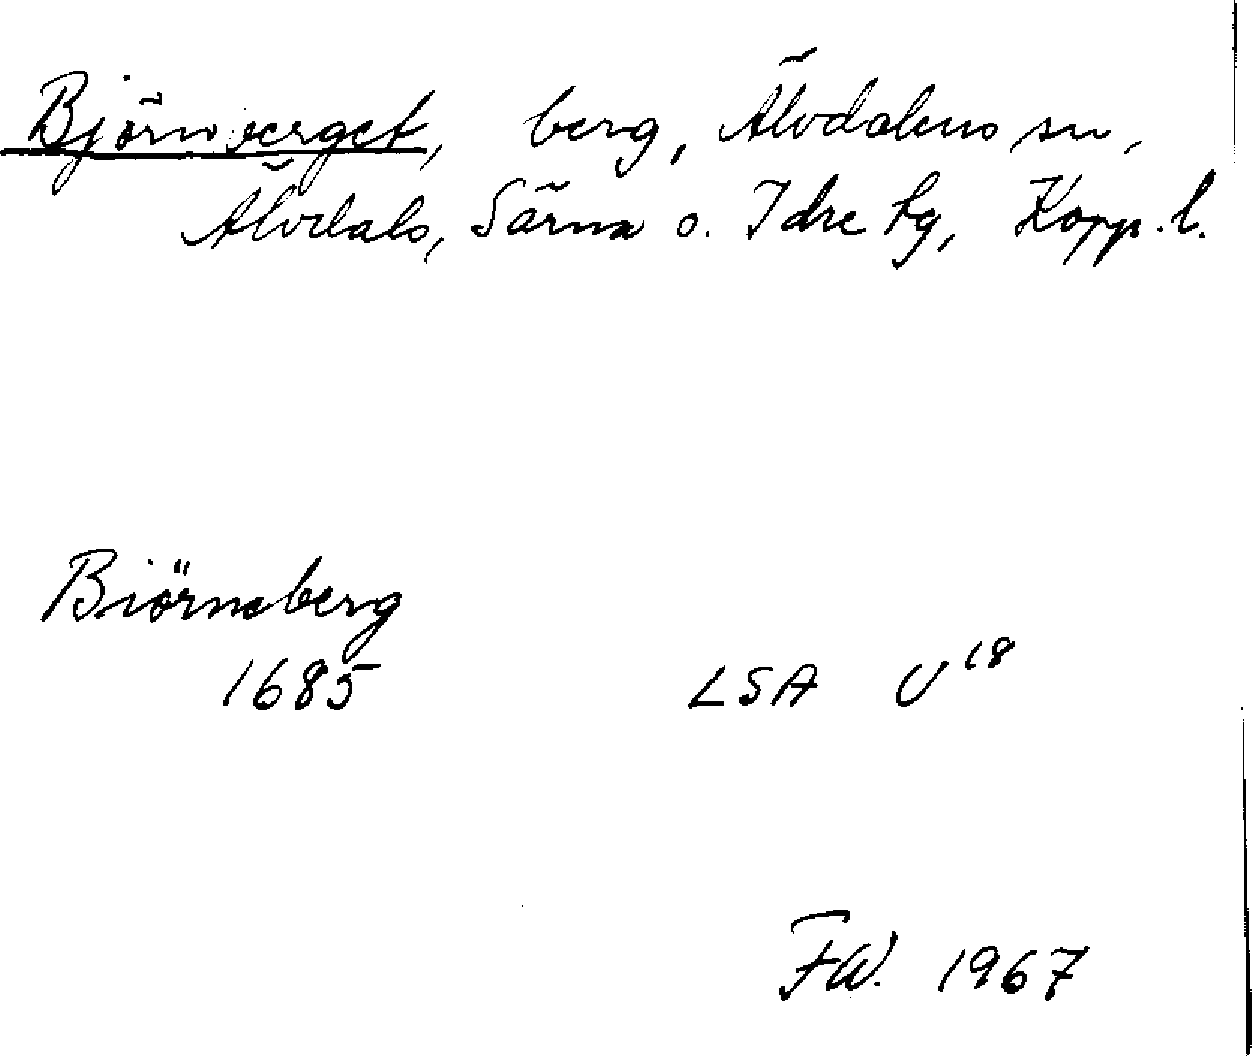 Björnberget, berg, Älvdalens sn,
Älvdals, Särna o. Idre tg, Kopp. l.
Biörneberg
1685 LSA U 18
FW. 1967